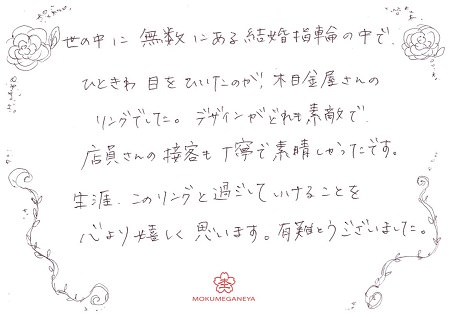 世の中に無数にある結婚指輪の中で、
ひときわ目をひいたのが、木目金屋さんの
リングでした。デザインがどれも素敵で
店員さんの接客も丁寧で素晴しかったです。
生涯、このリングと過ごしていけることを
心より嬉しく思います。有難とうございました。
MOKUMEGANEYA